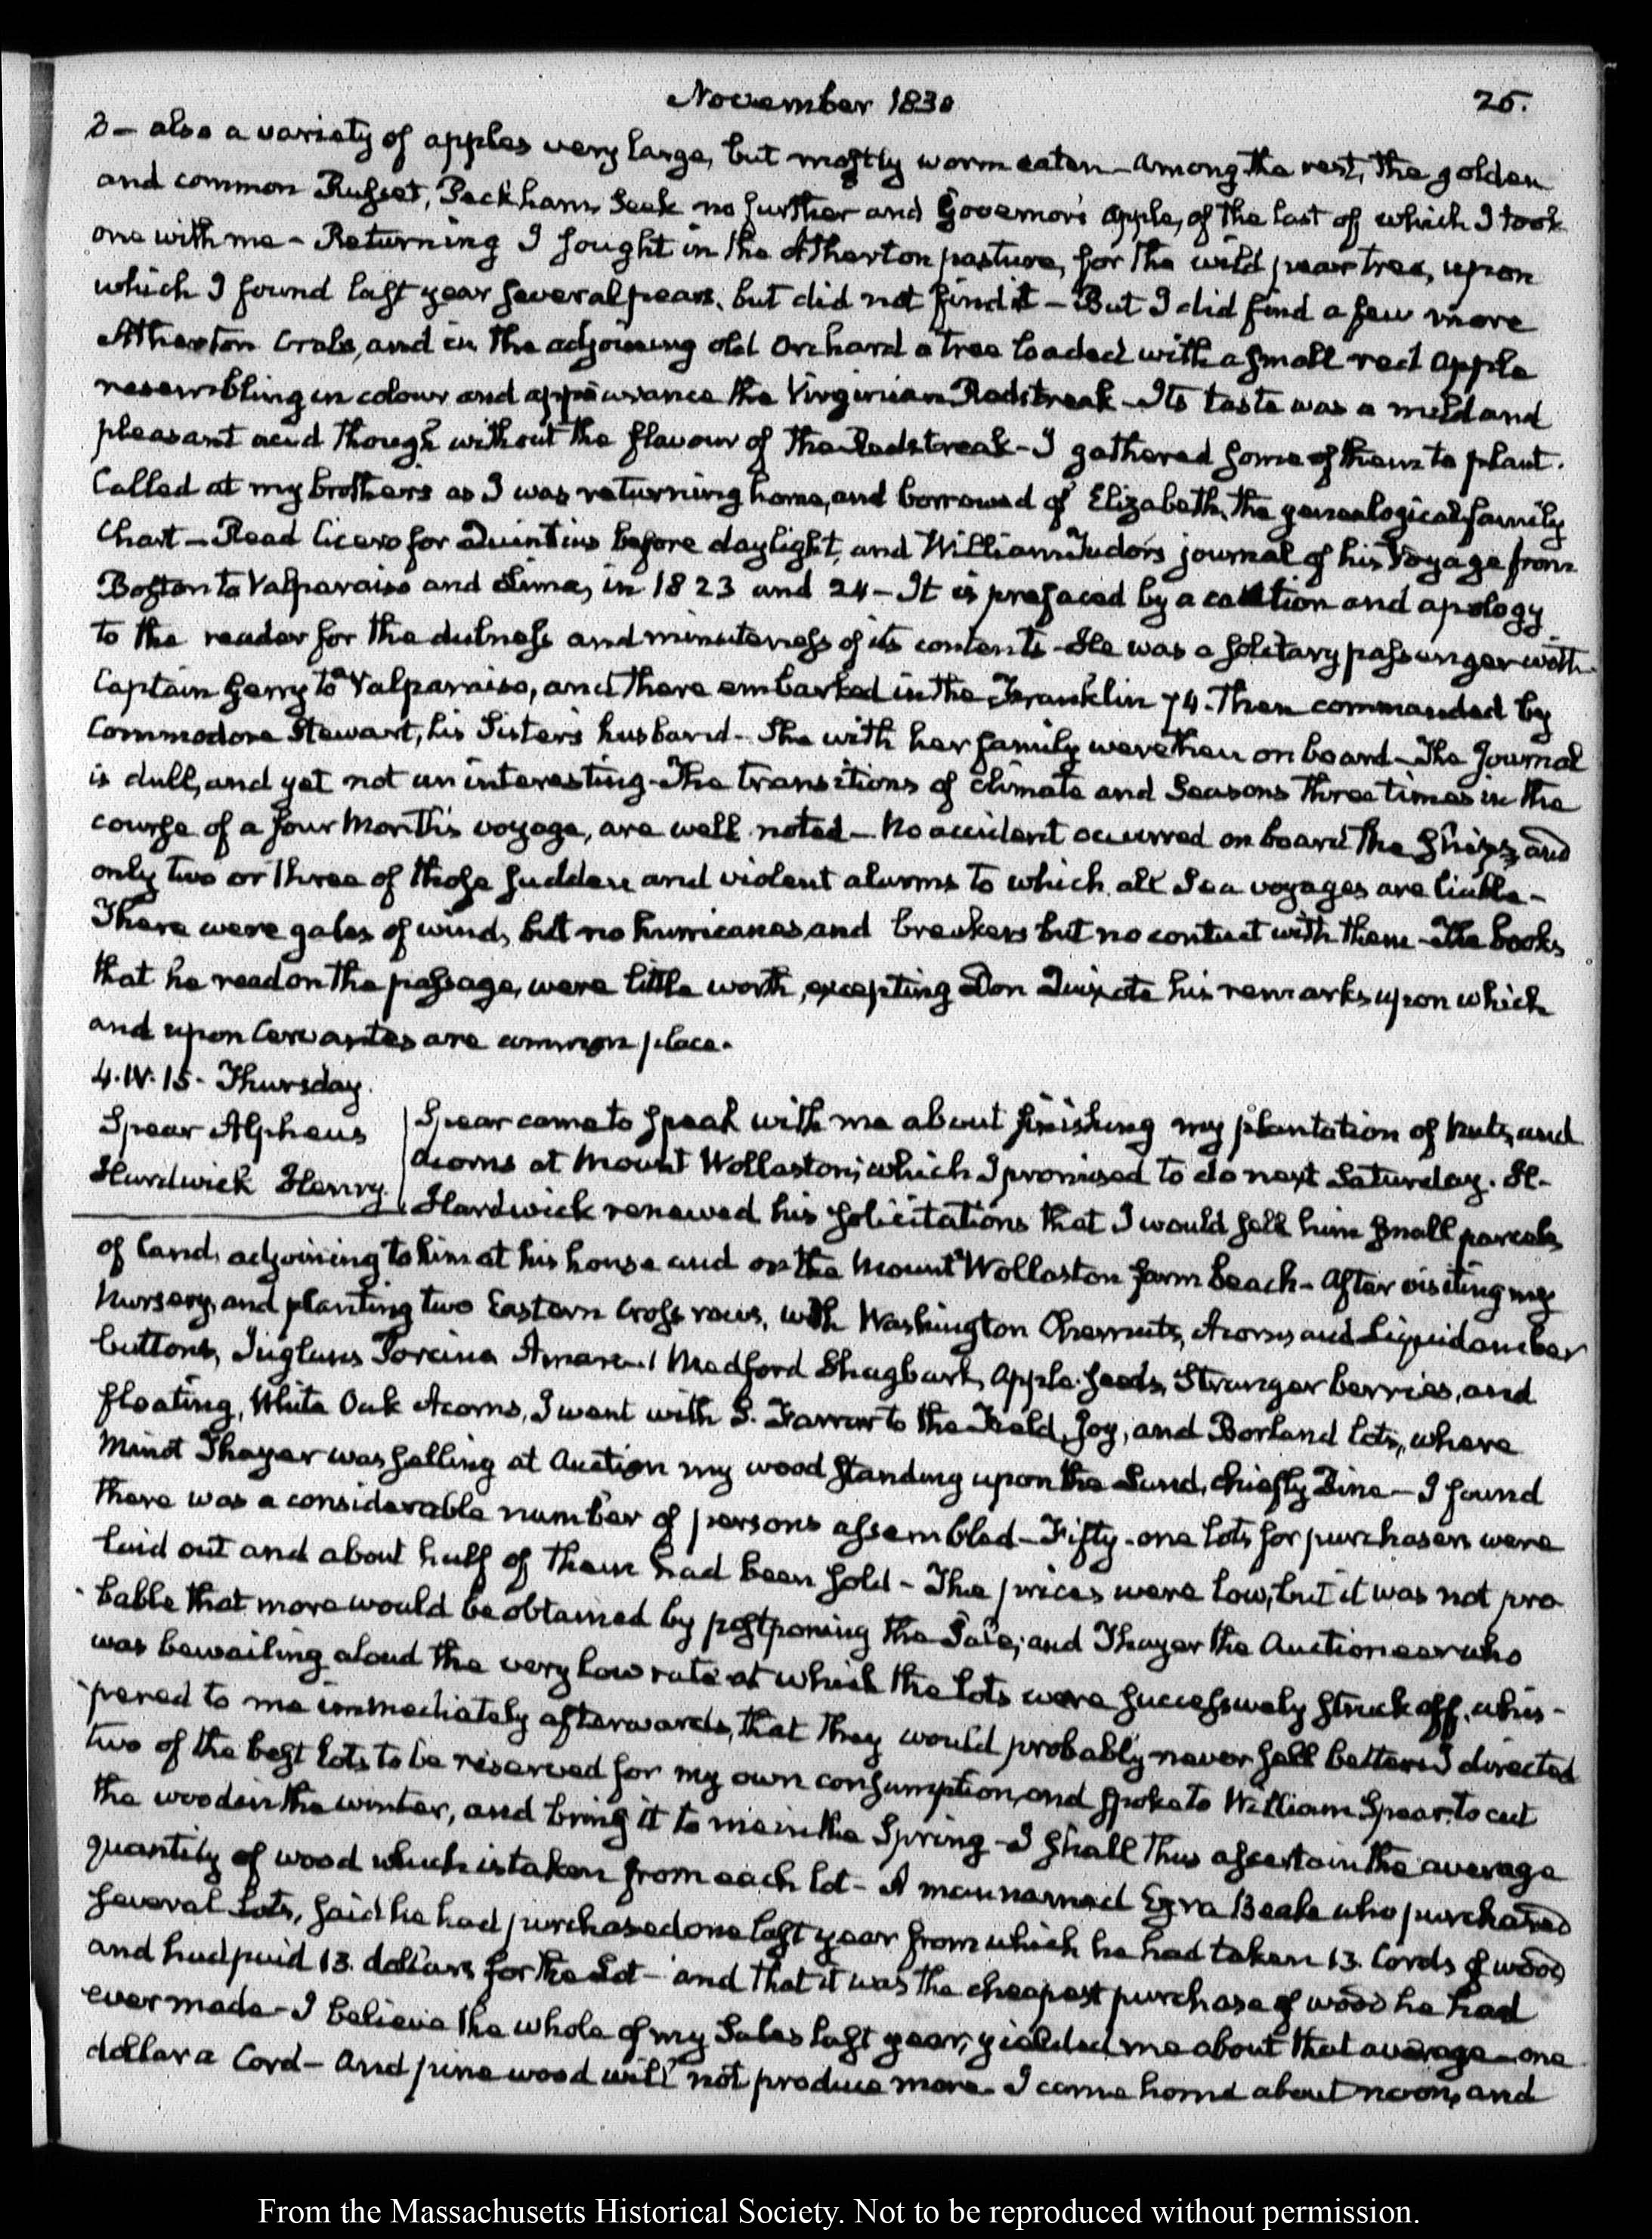 November 1830
25.
3 – also a variety of apples very large, but mostly worm eaten – Among the rest, the golden
and common Russet, Peckham, Seek no further and Governor's Apple, of the last of which I took
one with me – Returning I sought in the Atherton pasture, for the wild pear tree, upon
which I found last year several pears, but did not find it – But I did find a few more
Atherton Crabs, and in the adjoining old Orchard a tree loaded with a small red apple
resembling in colour and appearance the Virginian Redstreak – Its taste was a mild and
pleasant acid though without the flavour of the Redstreak – I gathered some of them to plant.
Called at my brother's as I was returning home, and borrowed of Elizabeth, the genealogical family
Chart – Read Cicero for Quintius before daylight, and William Tudor's journal of his Voyage from
Boston to Valparaiso and Lima, in 1823 and 24 – It is prefaced by a caution and apology
to the reader for the dulness and minuteness of its contents – He was a solitary passenger with
Captain Gerry to Valparaiso, and there embarked in the Franklin 74. Then commanded by
Commodore Stewart, his Sister's husband – She with her family were then on board – The Journal
is dull, and yet not uninteresting – The transitions of climate and Seasons three times in the
course of a four Month's voyage, are well noted – No accident occurred on board the ships, and
only two or three of those sudden and violent alarms to which all Sea voyages are liable –
There were gales of wind, but no hurricanes and breakers but no contact with them – The books
that he read on the passage, were little worth, excepting Don Quixote his remarks upon which
and upon Cervantes are common place.
4. IV. 15. Thursday.
Spear Alpheus
Hardwick Henry
Spear came to speak with me about finishing my plantation of Nuts, and
Acorns at Mount Wollaston; which I promised to do next Saturday. H.
Hardwick renewed his solicitations that I would sell him small parcels
of land, adjoining to him at his house and on the Mount Wollaston farm beach – After visiting my
Nursery, and planting two Eastern Cross rows, with Washington Chesnuts, Acorns and Liquidambar
buttons, Juglans Porcina Amara Medford Shagbark, Apple-seeds, Stranger berries, and
floating, White Oak Acorns, I went with S. Farrar to the Field, Joy, and Borland lots, where
Minot Thayer was selling at Auction my wood standing upon the Land, chiefly Pine – I found
there was a considerable number of persons assembled – Fifty-one lots for purchasers were
laid out and about half of them had been sold – The prices were low; but it was not pro
bable that more would be obtained by postponing the Sale; and Thayer the Auctioneer who
was bewailing aloud the very low rate at which the lots were successively struck off, whis-
pered to me immediately afterwards, that they would probably never sell better. I directed
two of the best lots to be reserved for my own consumption, and spoke to William Spear to cut
the wood in the winter, and bring it to me in the Spring – I shall thus ascertain the average
quantity of wood which is taken from each lot – A man named Ezra Beale who purchased
several Lots, said he had purchased one last year from which he had taken 13. Cords of wood
and had paid 13. dollars for the Lot – and that it was the cheapest purchase of wood he had
ever made – I believe the whole of my Sales last year, yielded me about that average – one
dollar a Cord – And pine wood will not produce more. I came home about noon, and
From the Massachusetts Historical Society. Not to be reproduced without permission.